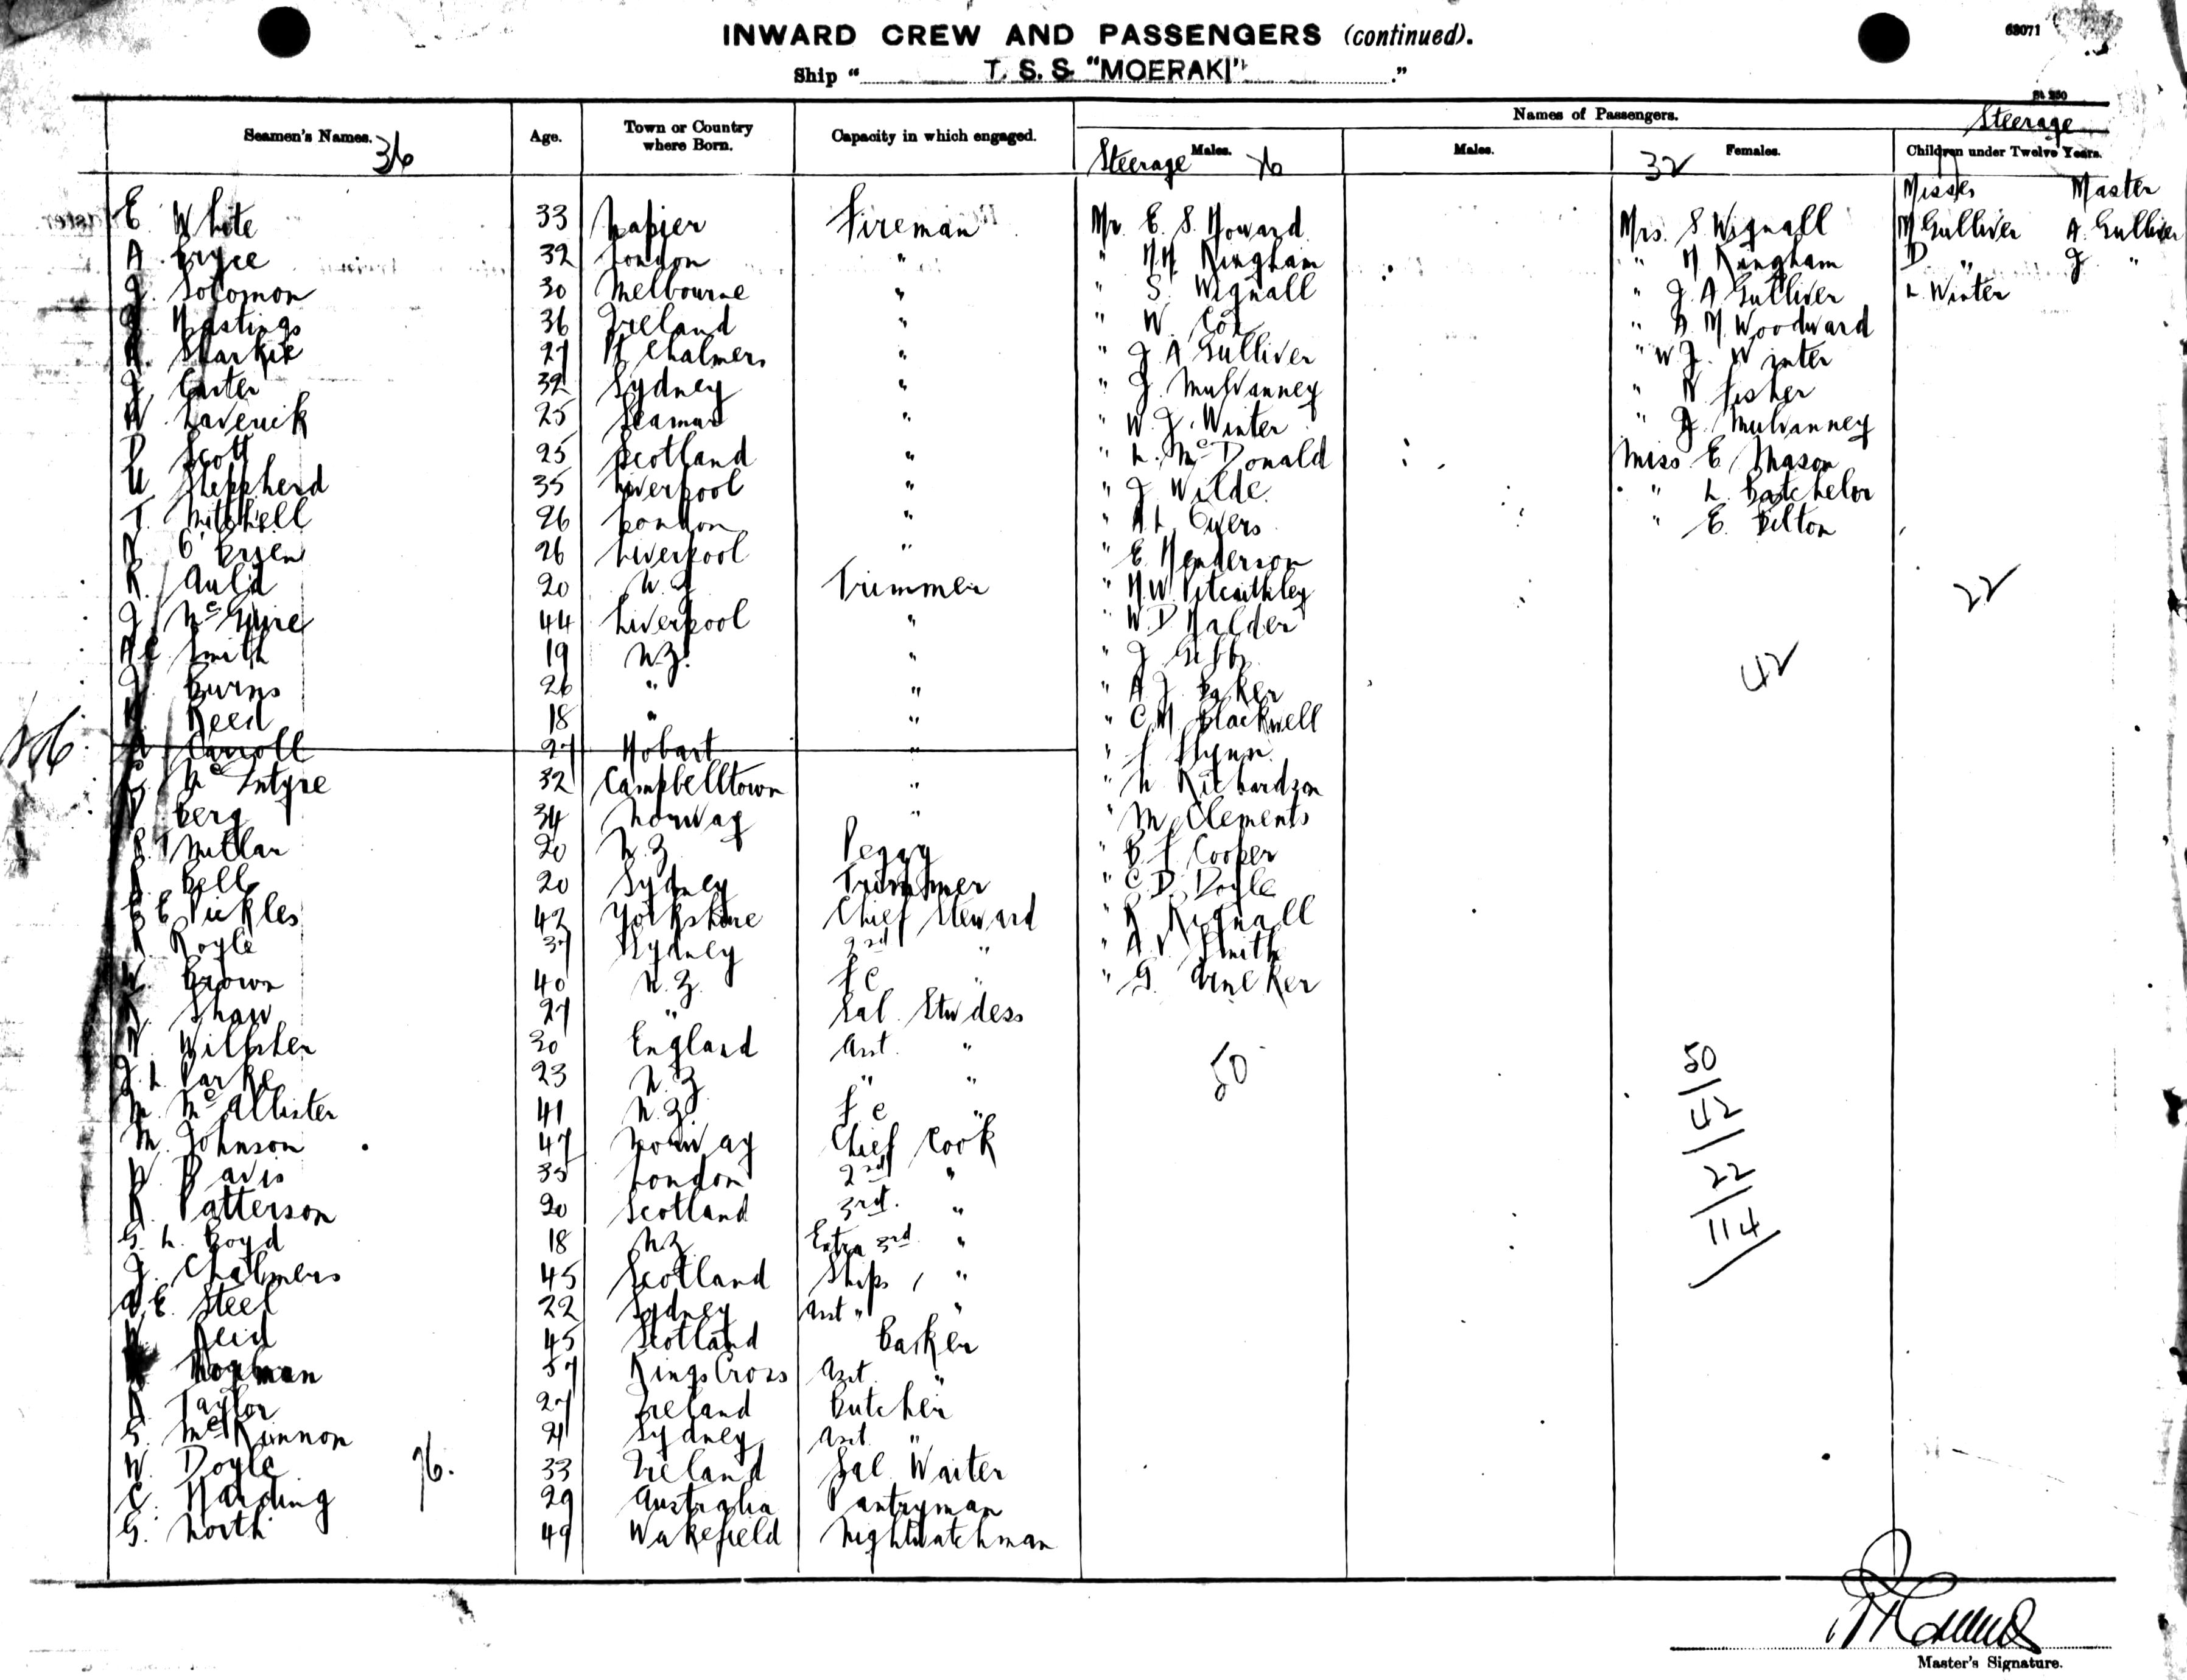 INWARD CREW AND PASSENGERS (continued).
63071
Ship " T. S. S. "MOERAKI" ."
Names of Passengers.
Steerage
Seamen's Names. 36
Age.
Town or Country where Born.
Capacity in which engaged.
Males. Steerage 26
Males.
Females. 32
Children under Twelve Years.
Misses Master
E White 33 Napier Fireman Mr. E. S. Howard Mrs. S Wignall M Gulliver A. Gulliver
A Bryce 32 London " " Kingham " Kingham D " J "
J. Solomon 30 Melbourne " " S. Wignall " J A Gulliver L Winter
Hastings 36 Ireland " " W. Cox " A. M. Woodward
Sharkie 27 Pt Chalmers " " J A Gulliver " W J. Winter
J. Carter 32 Sydney " " J Mulvanney " Fisher
W Laverick 25 Seaman " " W. J. Winter " J. Mulvanney
D Scott 25 Scotland " " L. McDonald Miss E Mason
Sheppherd 35 Liverpool " " J Wilde " L. Batchelor
T. Mitchell 26 London " " " E. Bilton
O'Brien 26 Liverpool " " E Henderson
R. Auld 20 N.Z Trimmer " Pitcaithley
J McGuire 44 Liverpool " " W. D Halder
A C Smith 19 N.Z. " " J Gibb
J. Burns 26 " " " A J Baker
Reed 18 " " " C. M Blackwell
Carroll 27 Hobart " " Flynn
McIntyre 32 Campbelltown " " Richardson
Berg 34 Norway " " M Clements
Millar 20 N.Z. Peggy " Cooper
Bell 20 Sydney Trimmer " C D. Doyle
E Pickles 42 Yorkshire Chief Steward " Rignall
Royle 37 Sydney 2nd " " Smith
Brown 40 N.Z. F C " " G.
Shaw 27 " Sal. Stwdess
30 England Asst. "
J. L. Parke 23 N.Z " "
M. McAllister 41 N.Z F. C "
M. Johnson 47 Norway Chief Cook
Davis 35 London 2nd "
R. Patterson 20 Scotland 3rd. "
G. L. Boyd 18 N.Z Extra 3rd "
J. Chalmers 45 Scotland Ships "
E. Steel 22 Sydney Asst " "
Reid 45 Scotland Baker
37 Kings Cross Asst. "
Taylor 27 Ireland Butcher
G. McKinnon 21 Sydney Asst. "
W. Doyle 33 Ireland Sal Waiter
C. Harding 29 Australia Pantryman
G. North 49 Wakefield Nightwatchman
22
42
50
50/42/22/114/
Master's Signature.